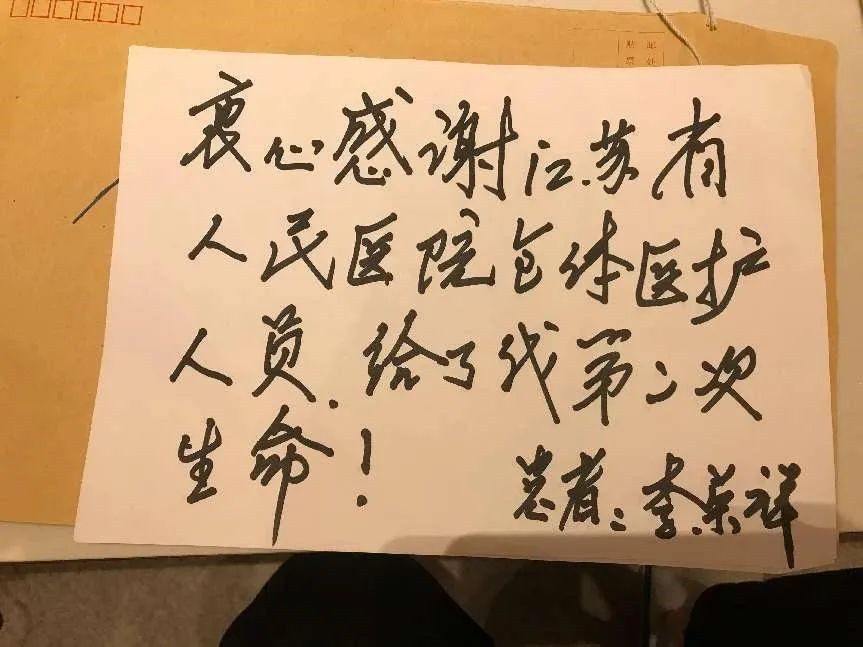 贴邮
票处
衷心感谢江苏省
人民医院全体医护
人员，给了我第二次
生命！
患者：李荣祥